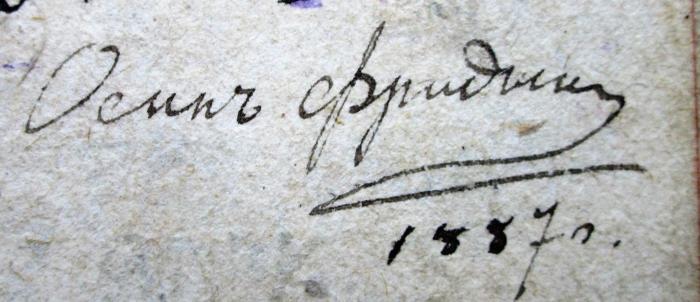 Осипъ Фридман
1887 г.